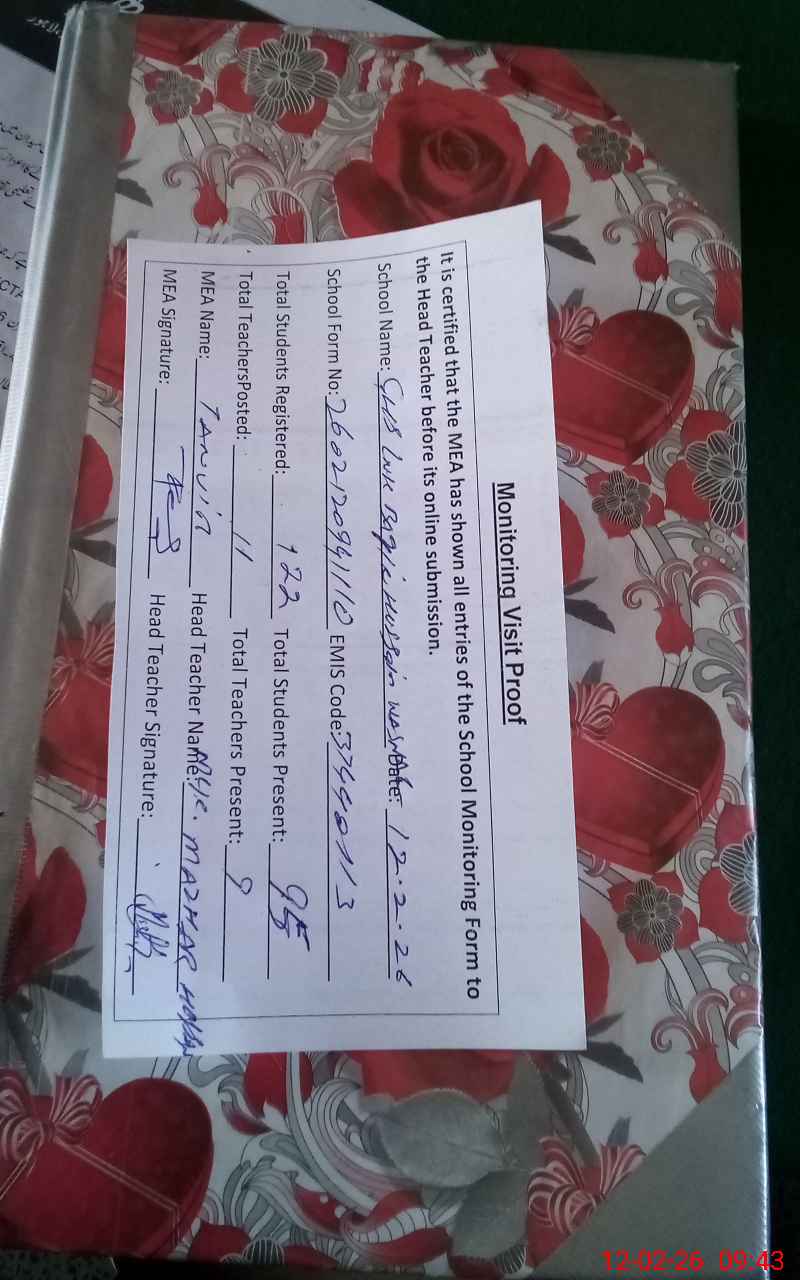 Monitoring Visit Proof
It is certified that the MEA has shown all entries of the School Monitoring Form to
the Head Teacher before its online submission.
School Name: GHS Date: 12.2.26
School Form No: EMIS Code: 37440113
Total Students Registered: 122 Total Students Present: 95
Total TeachersPosted: 11 Total Teachers Present: 9
MEA Name: TANVIR Head Teacher Name: MAZHAR
MEA Signature: Head Teacher Signature:
12-02-26 09:43